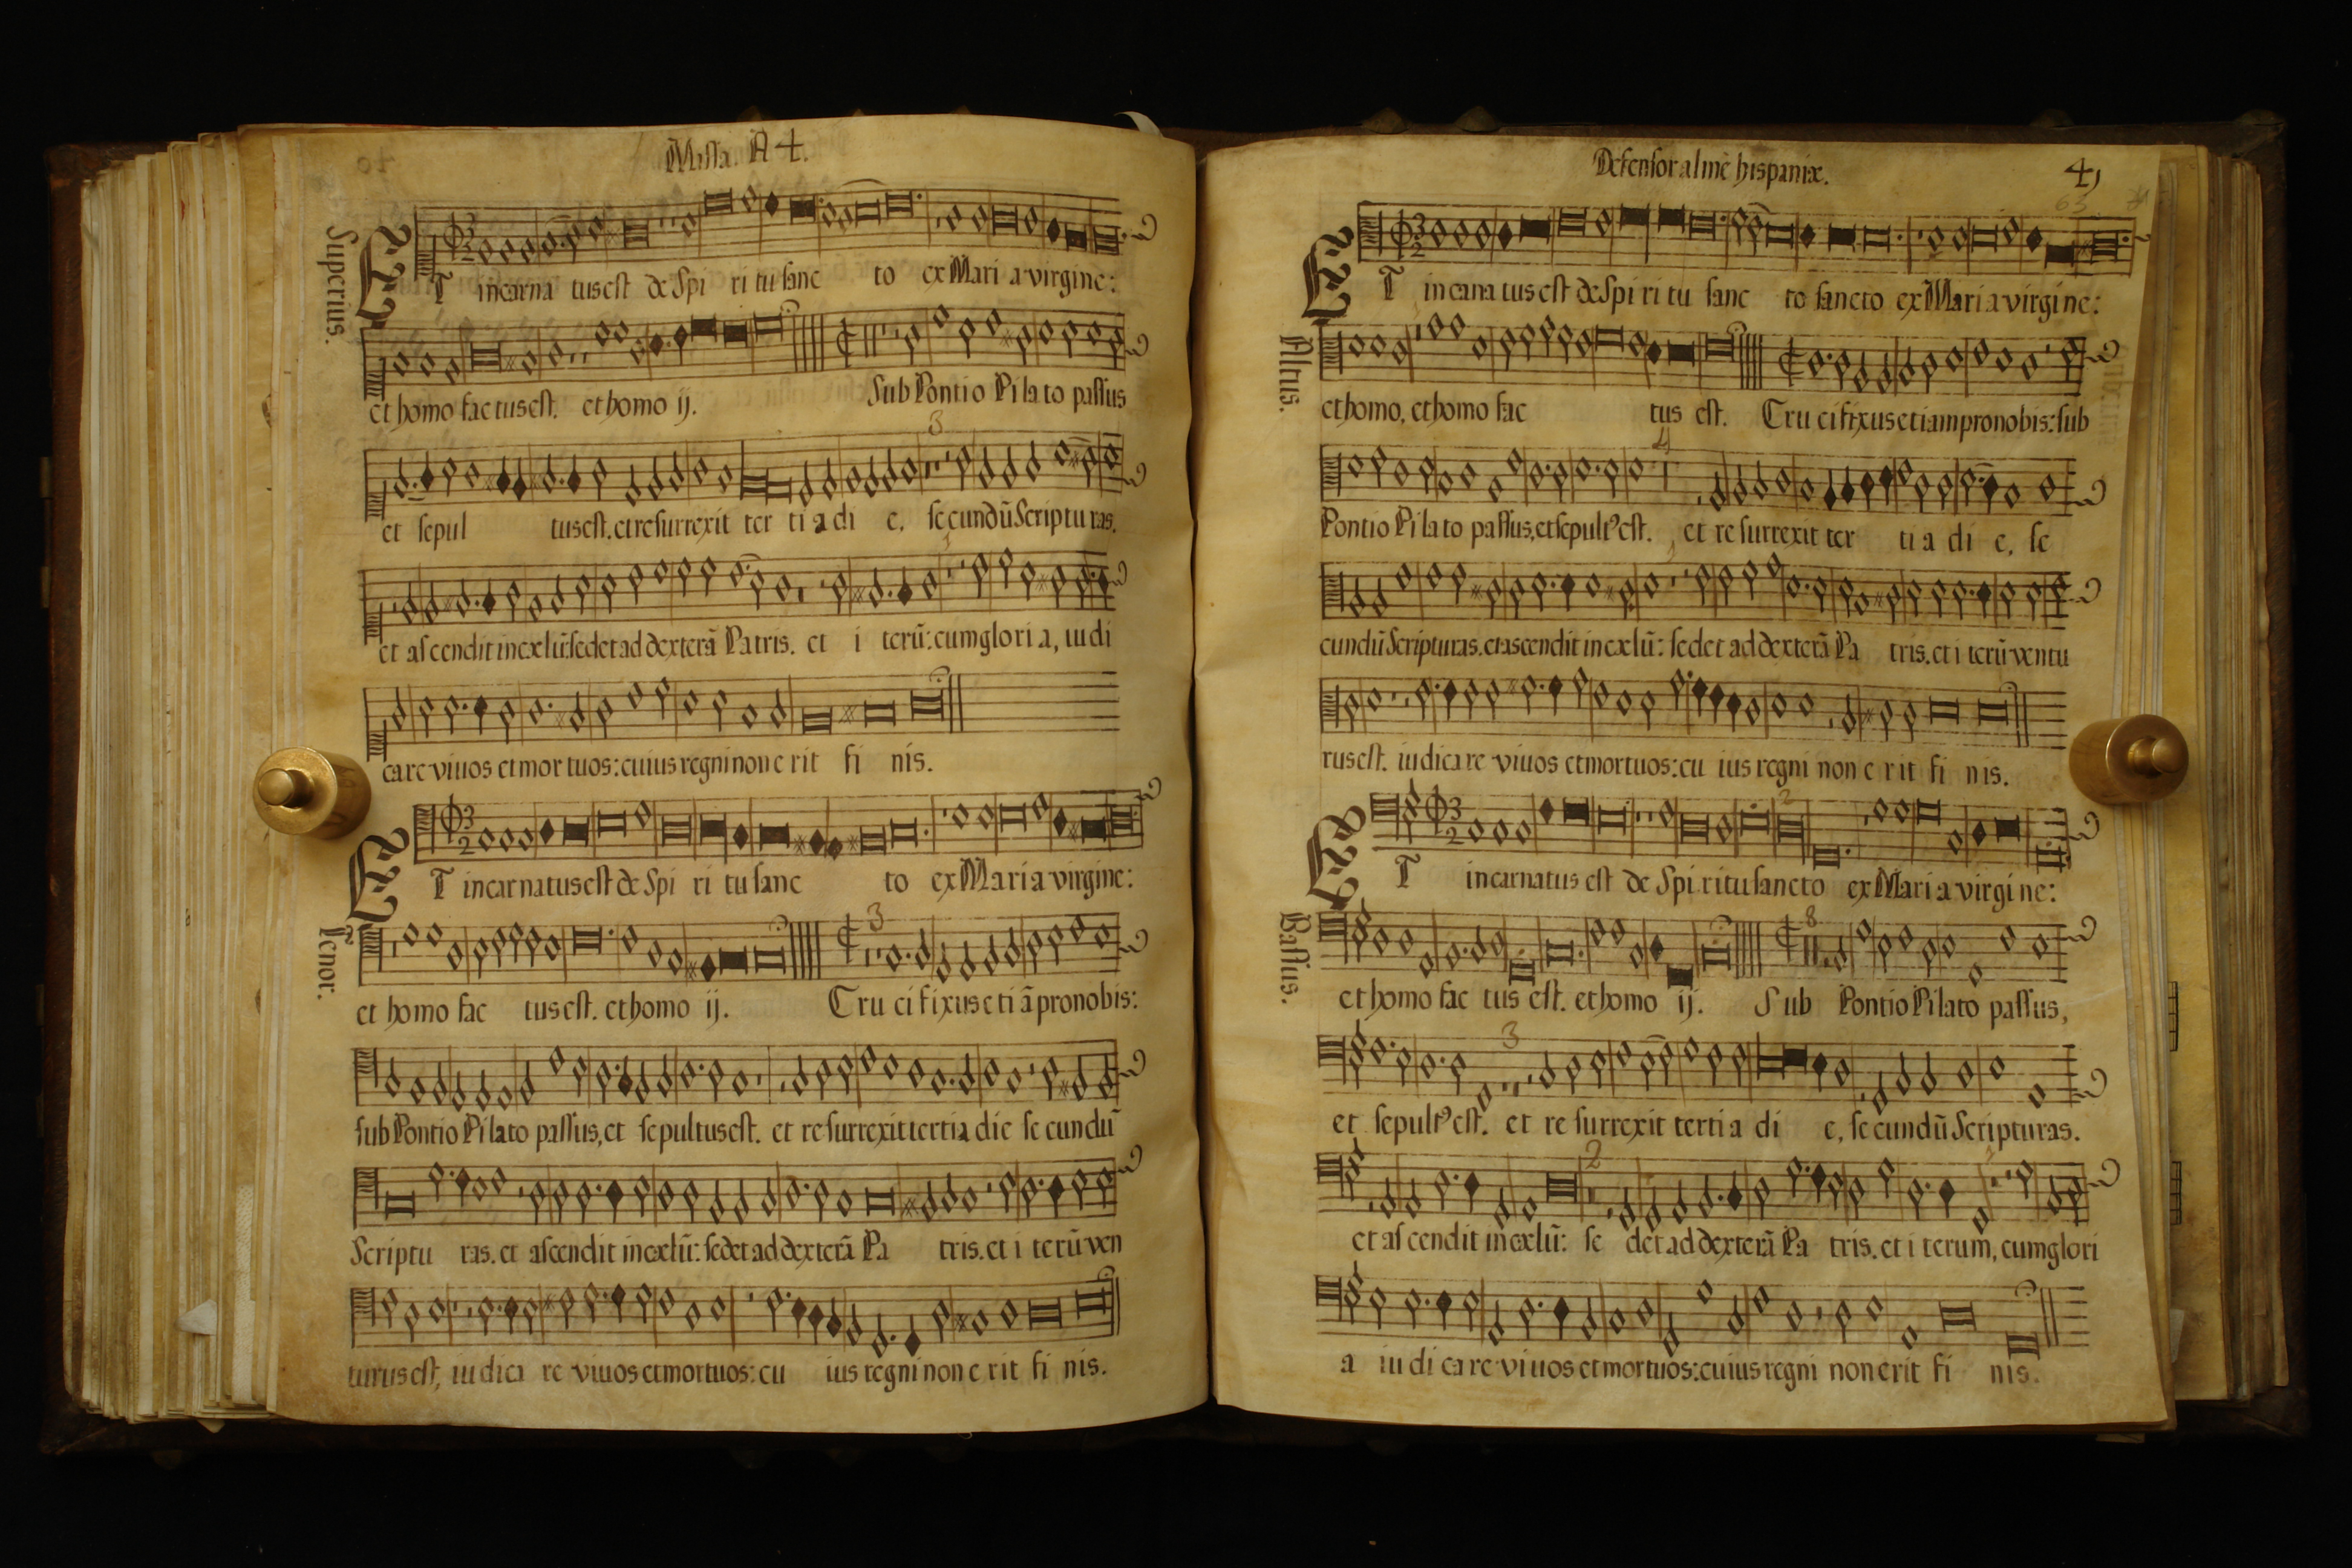 Missa. A 4.
Superius.
ET incarna tus est de Spi ri tu sanc to ex Mari a virgine:
et homo factus est. et homo ij. Sub Pontio Pilato passus
3
et sepul tus est. et resurrexit ter ti a di e, secundũ Scripturas.
et ascendit in cælũ: sedet ad dexterã Patris. et i terũ: cum gloria, iudi
care viuos et mortuos: cuius regni non e rit fi nis.
Tenor.
ET incarnatus est de Spi ri tu sanc to ex Maria virgine:
3
et homo fac tus est. et homo ij. Cru ci fixus eti ã pro nobis:
sub Pontio Pilato passus, et sepultus est. et resurrexit tertia die se cundũ
Scriptu ras. et ascendit in cælũ: sedet ad dexterã Pa tris. et i terũ ven
turus est, iu dica re viuos et mortuos: cu ius regni non e rit fi nis.
Defensor almē hispaniæ.
41
63
Altus.
ET incarnatus est de Spi ri tu sanc to sancto ex Maria virgine:
et homo, et homo fac tus est. Cru cifixus etiam pro nobis: sub
4
Pontio Pilato passus, et sepultꝰ est. et re surrexit ter ti a di e, se
cundũ Scripturas. et ascendit in cælũ: sedet ad dexterã Pa tris. et i terũ ventu
rus est. iudicare viuos et mortuos: cu ius regni non e rit fi nis.
Bassus.
2
ET incarnatus est de Spi ritu sancto ex Mari a virgi ne:
8
et homo fac tus est. et homo ij. Sub Pontio Pilato passus,
3
et sepultꝰ est. et re surrexit terti a di e, se cundũ Scripturas.
2
et ascendit in cælũ: se det ad dexterã Pa tris. et i terum, cum glori
a iu di care viuos et mortuos: cuius regni non erit fi nis.